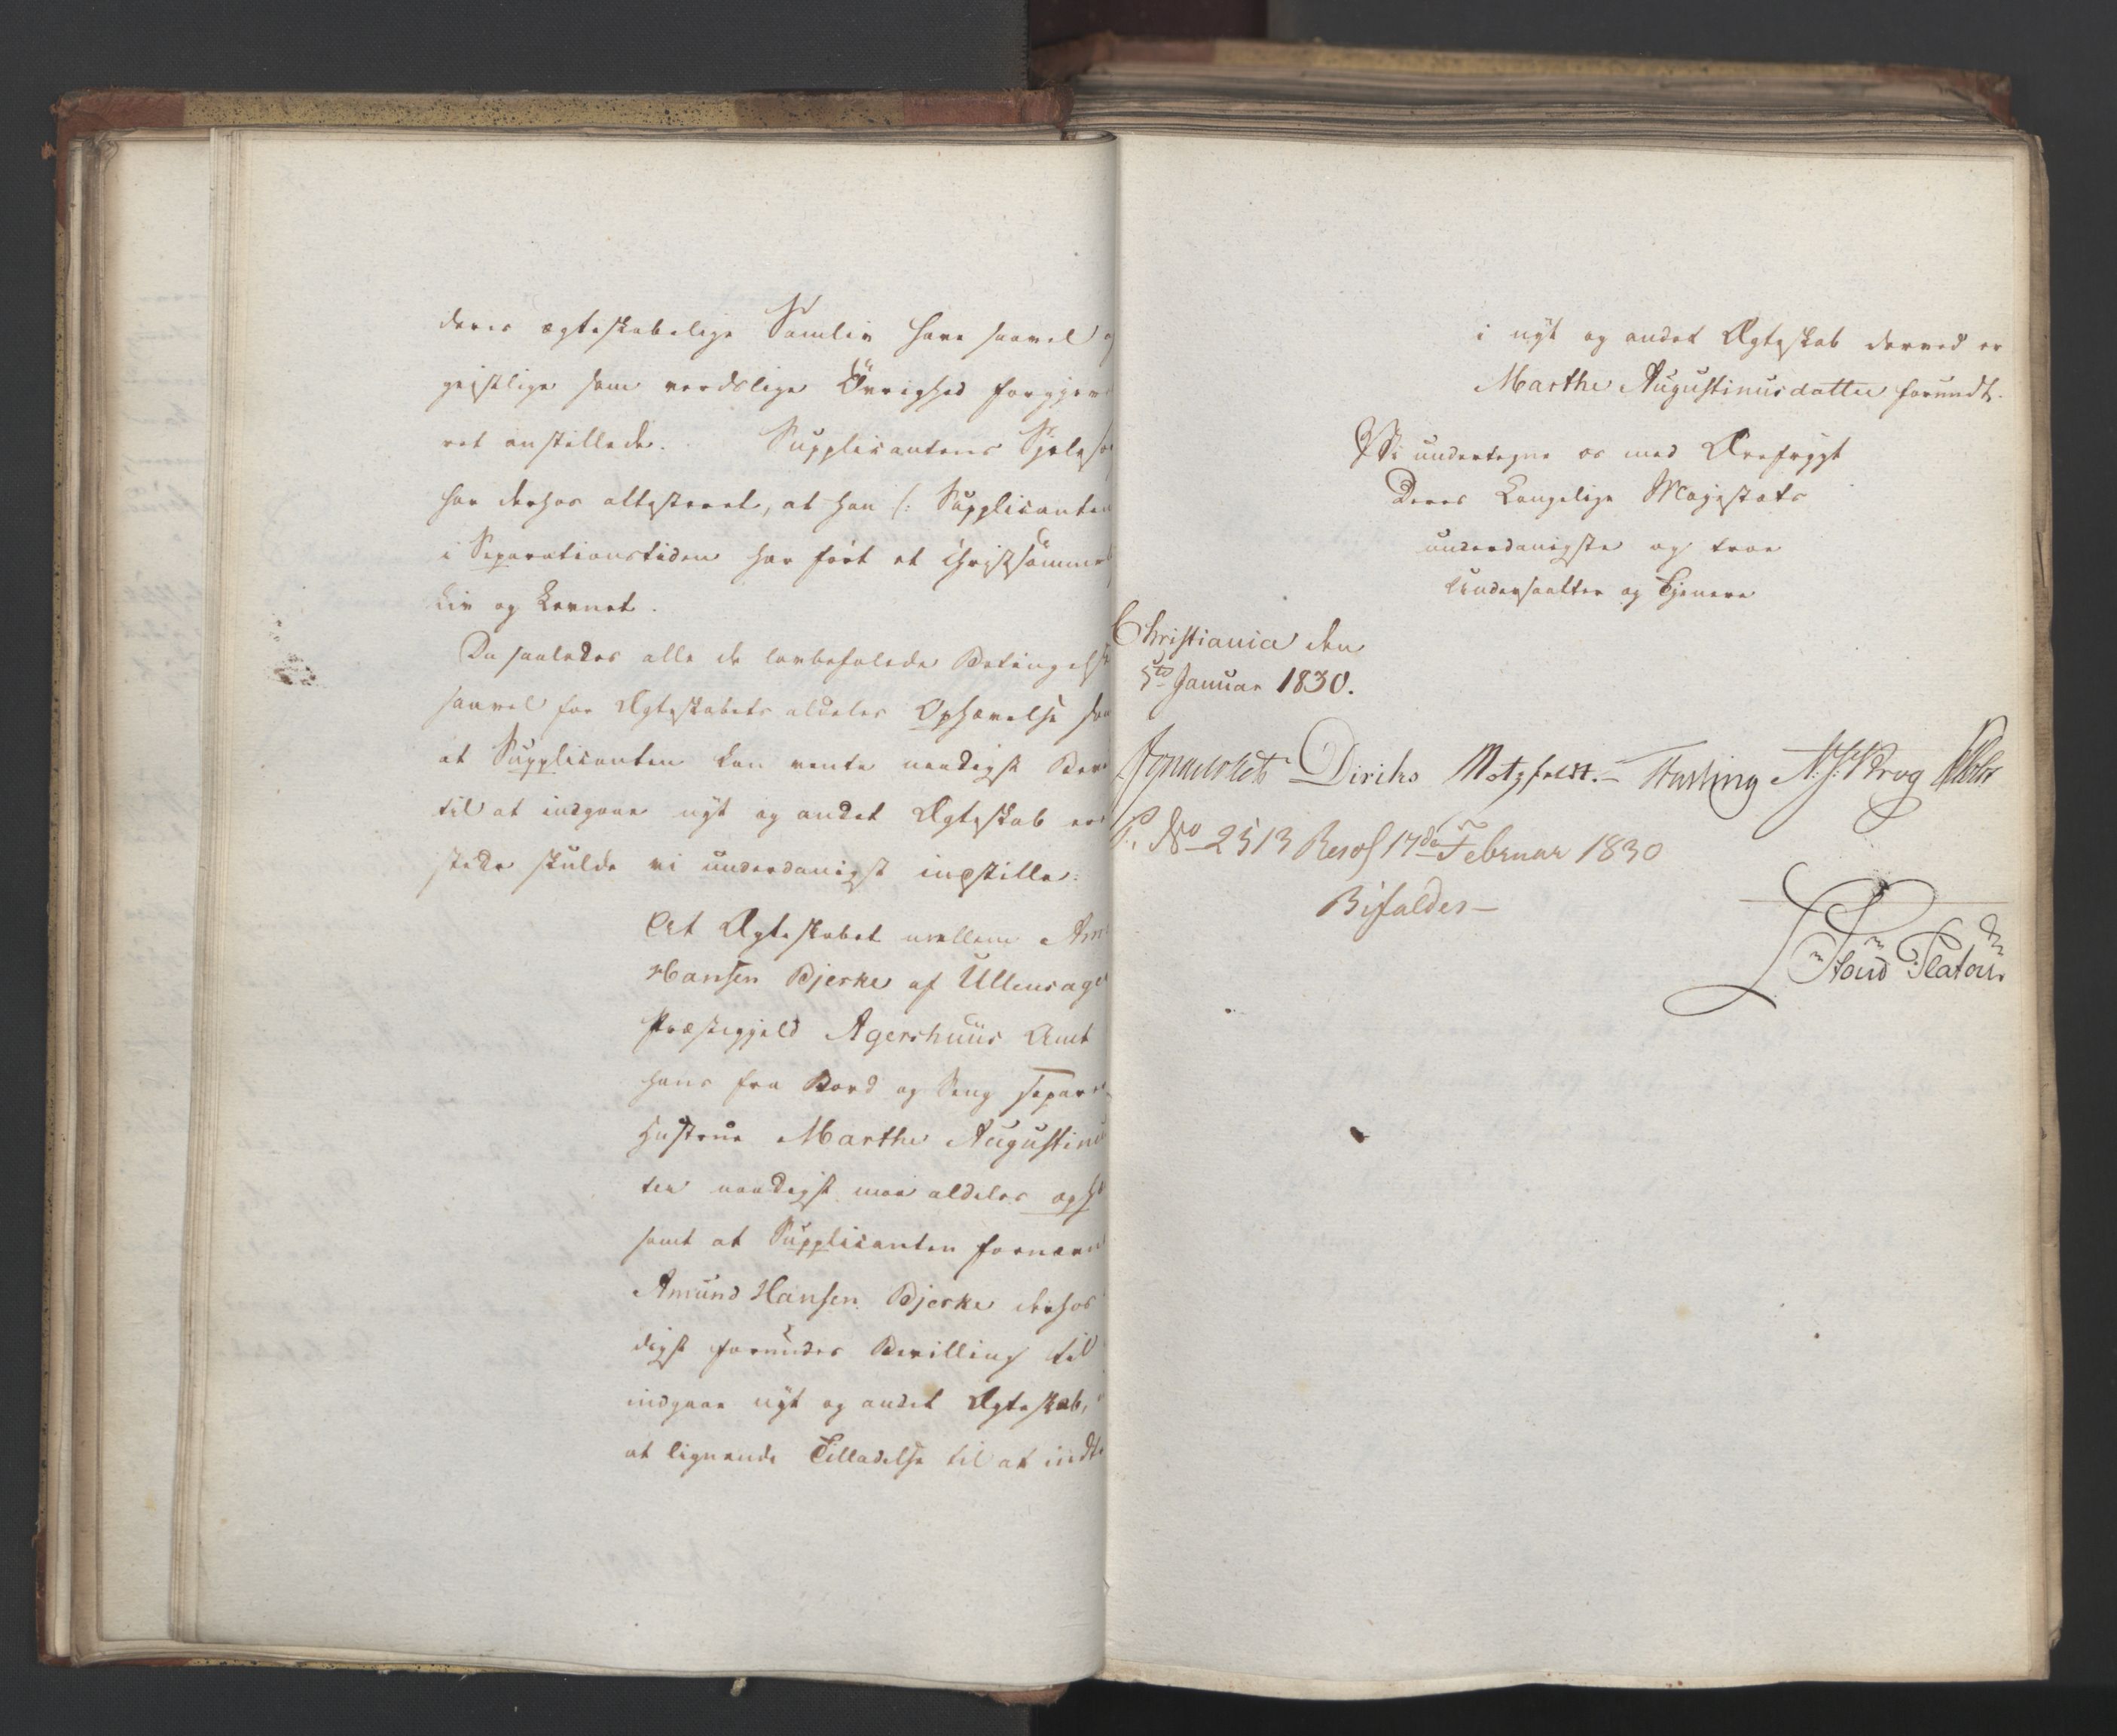 deres ægteskabelige Samliv have saavel
geistlige som verdslige Övrighed forgjeve
ret anstillede. Supplicantens Sjeleso
har derhos attesteret, at han /: Supplicanten
i Separationstiden har ført et christsømme
Liv og Levnet.
Da saaledes alle de lovbefalede Betingelse
saavel for Ægteskabets aldeles Ophævelse som
at Supplicanten kan vente naadigst Bev
til at indgaae nyt og andet Ægteskab ere
stede skulde vi underdanigst indstille:
At Ægteskabet mellem Am
Hansen Bjerke af Ullensager
Præstegjeld Agershuus Amt
hans fra Bord og Seng separe
Hustrue Marthe Augustinu
ter naadigst maa aldeles ophæ
samt at Supplicanten fornævn
Amund Hansen Bjerke derhos
digst forundes Bevilling til
indgaae nyt og andet Ægteskab,
at lignende Tilladelse til at indt
i nyt og andet Ægteskab derved er
Marthe Augustinusdatter forundt.
Vi undertegne os med Ærefrygt
Deres Kongelige Majestæts
underdanigste og troe
Undersaatter og Tjenere
Christiania den
5te Januar 1830.
Diriks Motzfeldt. Fasting
P. No 2513 Resol 17de Februar 1830
Bifaldes